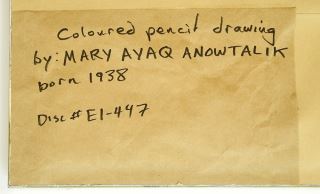 Coloured pencil drawing
by: MARY AYAQ ANOWTALIK
born 1938
Disc # E1-447